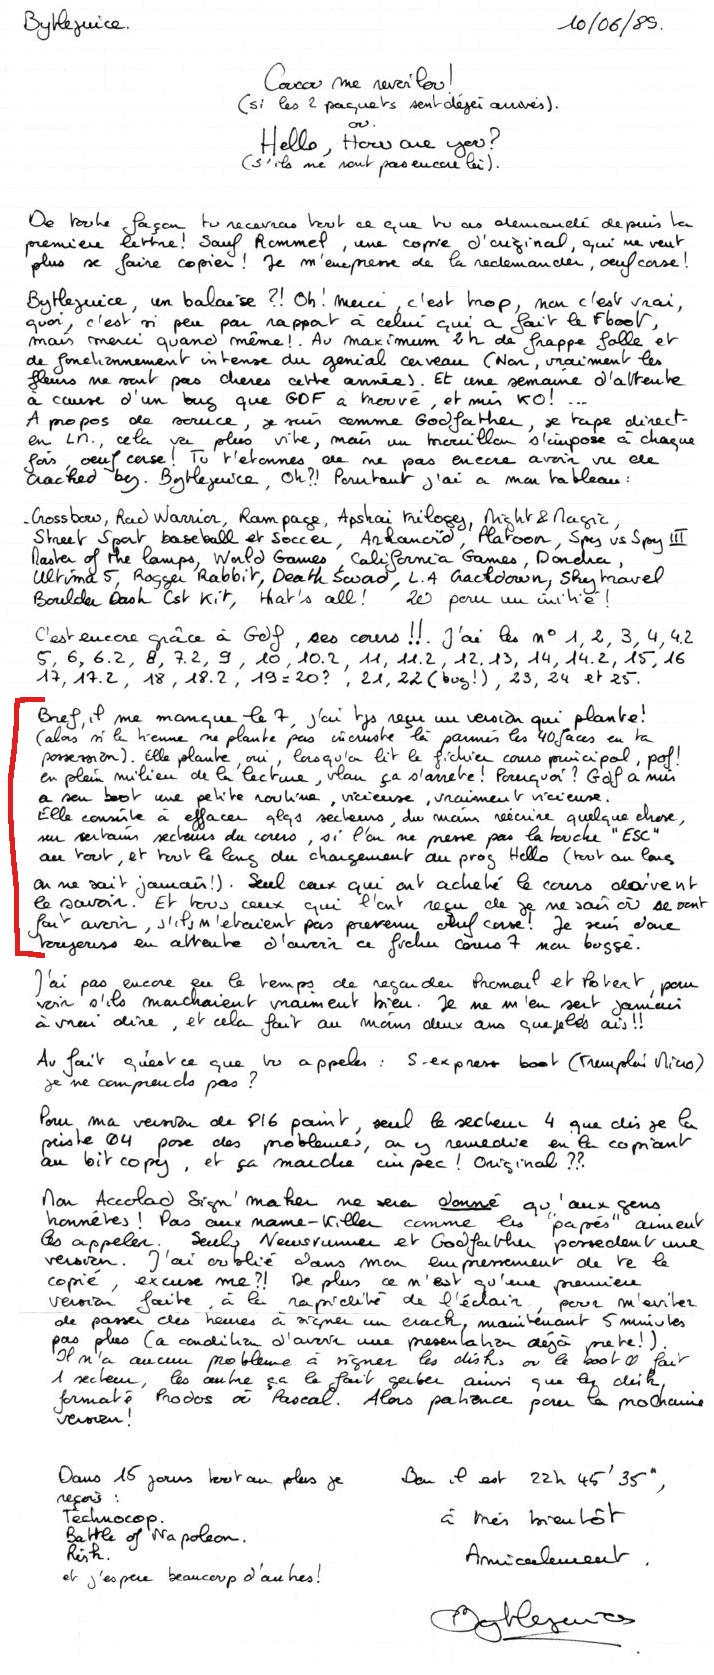 Bytlejuice.
10/06/89.
Coucou me revoilou!
(si les 2 paquets sont déjà arrivés).
ou.
Hello, How are you?
(s'ils ne sont pas encore là).
De toute façon tu recevras tout ce que tu as demandé depuis ta
première lettre! Sauf Rommel, une copie d'original, qui ne veut
plus se faire copier! Je m'empresse de la redemander, oeuf corse!
Bytlejuice, un balaise?! Oh! merci, c'est trop, non c'est vrai,
quoi, c'est si peu par rapport à celui qui a fait le Fboot,
mais merci quand même!. Au maximum 2h de frappe folle et
de fonctionnement intense du genial cerveau (Non, vraiment les
fleurs ne sont pas cheres cette année). Et une semaine d'attente
à cause d'un bug que GDF a trouvé, et mis KO! ...
A propos de source, je suis comme Godfather, je tape direct-
en LM., cela va plus vite, mais un brouillon s'impose à chaque
fois, oeuf corse! Tu t'etonnes de ne pas encore avoir vu de
cracked by. Bytlejuice, Oh?! Pourtant j'ai a mon tableau:
-Crossbow, Rad Warrior, Rampage, Apshai trilogy, Might & Magic,
Street Sport baseball et Soccer, Arkanoïd, Platoon, Spy vs Spy III
Master of the lamps, World Games, California Games, Dondra,
Ultima 5, Rogger Rabbit, Death Sword, L.A Crackdown, Skytravel
Boulder Dash Cst Kit, that's all! 20 pour un initié!
C'est encore grâce à Gdf, ses cours!!. J'ai les n° 1, 2, 3, 4, 4.2
5, 6, 6.2, 8, 7.2, 9, 10, 10.2, 11, 11.2, 12, 13, 14, 14.2, 15, 16
17, 17.2, 18, 18.2, 19=20?, 21, 22 (bug!), 23, 24 et 25.
Bref, il me manque le 7, j'ai tjs reçu un version qui plante!
(alors si la tienne ne plante pas incruste là parmis les 40 faces en ta
possession). Elle plante, oui, lorsqu'on lit le fichier cours principal, pof!
en plein milieu de la lecture, vlan ça s'arrete! Pourquoi? Gdf a mis
a son boot une petite routine, vicieuse, vraiment vicieuse.
Elle consiste à effacer qlqs secteurs, du moins réécrire quelque chose,
sur certains secteurs du cours, si l'on ne presse pas la touche "ESC"
au tout, et tout le long du chargement du prog Hello (tout au long
on ne sait jamais!). Seul ceux qui ont acheté le cours doivent
le savoir. Et tous ceux qui l'ont reçu de je ne sais où se sont
fait avoir, s'ils n'etaient pas prevenu oeuf corse! Je suis donc
toujours en attente d'avoir ce fichu cours 7 non buggé.
J'ai pas encore eu le temps de regarder Promeul et Potext, pour
voir s'ils marchaient vraiment bien. Je ne m'en sert jamais
à vrai dire, et cela fait au moins deux ans que je les ais!!
Au fait qu'est ce que tu appeles: S-express boot (Tremplin Micro)
je ne comprends pas?
Pour ma version de 816 paint, seul le secteur 4 que dis je la
piste 04 pose des problemes, on y remedie en la copiant
au bit copy, et ça marche impec! Original??
Mon Accolad Sign' maker ne sera donné qu'aux gens
honnêtes! Pas aux name-Killer comme les "papés" aiment
les appeler. Seuls Newsrunner et Godfather possedent une
version. J'ai oublié dans mon empressement de te le
copié, excuse me?! De plus ce n'est qu'une premiere
version faite, à la rapidité de l'éclair, pour m'eviter
de passer des heures à signer un crack, maintenant 5 minutes
pas plus (a condition d'avoir une presentation déjà prete!).
Il n'a aucun probleme à signer les disks où le boot 0 fait
1 secteur, les autre ça le fait gerber ainsi que les disk,
formaté Prodos où Pascal. Alors patience pour la prochaine
version!
Dans 15 jours tout au plus je
reçois:
Technocop.
Battle of Napoleon.
Risk.
et j'espere beaucoup d'autres!
Bon il est 22h 45'35",
à très bientôt
Amicalement.
Bytlejuice